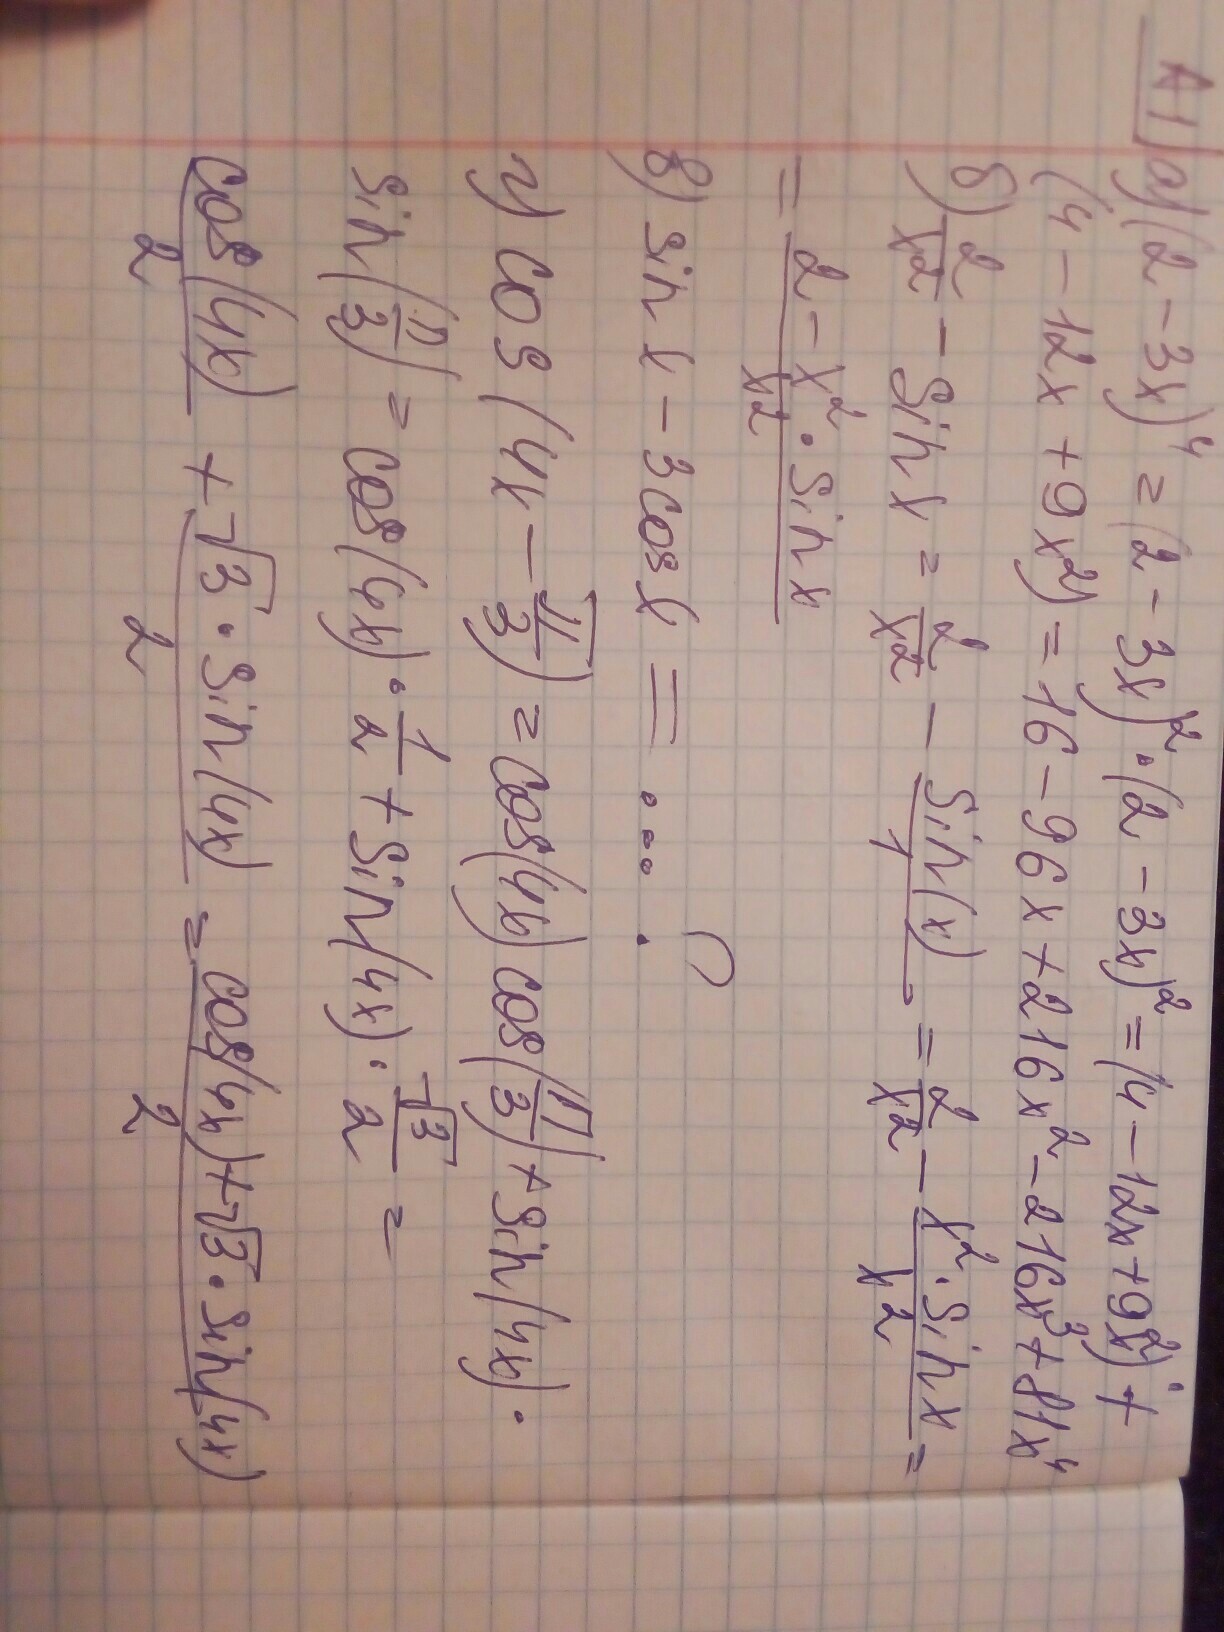 A1) а) (2 - 3x)⁴ = (2 - 3x)² · (2 - 3x)² = (4 - 12x + 9x²) · +
(4 - 12x + 9x²) = 16 - 96x + 216x² - 216x³ + 81x⁴
б) 2/x² - Sin x = 2/x² - Sin(x)/1 = 2/x² - x² · Sin x/x² =
= 2 - x² · Sin x/x²
в) sin x - 3cos x = ... . ?
г) cos (4x - π/3) = cos(4x) cos(π/3) + Sin(4x) ·
Sin(π/3) = cos(4x) · 1/2 + Sin(4x) · √3/2 =
cos(4x)/2 + √3 · Sin(4x)/2 = cos(4x) + √3 · Sin(4x)/2